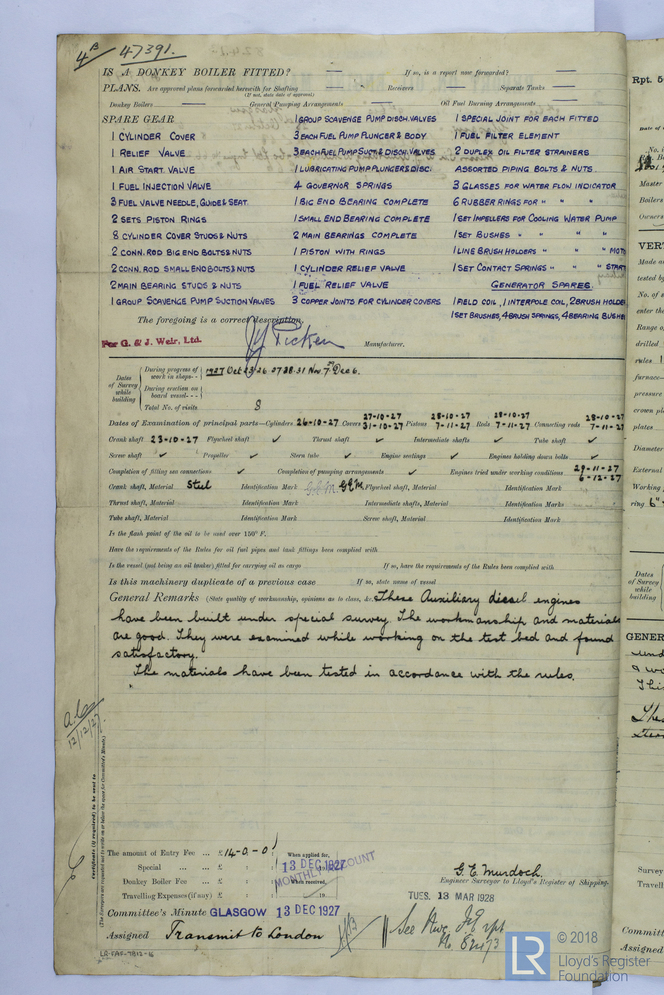 4B 47391.
IS A DONKEY BOILER FITTED? If so, is a report now forwarded?
PLANS. Are approved plans forwarded herewith for Shafting Receivers Separate Tanks
(If not, state date of approval)
Donkey Boilers General Pumping Arrangements Oil Fuel Burning Arrangements
SPARE GEAR 1 GROUP SCAVENGE PUMP DISCH. VALVES 1 SPECIAL JOINT FOR EACH FITTED
1 CYLINDER COVER 3 EACH FUEL PUMP PLUNGER & BODY 1 FUEL FILTER ELEMENT
1 RELIEF VALVE 3 EACH FUEL PUMP SUCTN & DISCH. VALVES 2 DUPLEX OIL FILTER STRAINERS
1 AIR START. VALVE 1 LUBRICATING PUMP PLUNGERS & DISC: ASSORTED PIPING BOLTS & NUTS
1 FUEL INJECTION VALVE 4 GOVERNOR SPRINGS 3 GLASSES FOR WATER FLOW INDICATOR
3 FUEL VALVE NEEDLE, GUIDE & SEAT. 1 BIG END BEARING COMPLETE 6 RUBBER RINGS FOR " " "
2 SETS PISTON RINGS 1 SMALL END BEARING COMPLETE 1 SET IMPELLERS FOR COOLING WATER PUMP
8 CYLINDER COVER STUDS & NUTS 2 MAIN BEARINGS COMPLETE 1 SET BUSHES " " "
2 CONN. ROD BIG END BOLTS & NUTS 1 PISTON WITH RINGS 1 LINE BRUSH HOLDERS " " MOT
2 CONN. ROD SMALL END BOLTS & NUTS 1 CYLINDER RELIEF VALVE 1 SET CONTACT SPRINGS " " START
2 MAIN BEARING STUDS & NUTS 1 FUEL RELIEF VALVE GENERATOR SPARES.
1 GROUP SCAVENGE PUMP SUCTION VALVES 3 COPPER JOINTS FOR CYLINDER COVERS 1 FIELD COIL, 1 INTERPOLE COIL, 2 BRUSH HOLDE
1 SET BRUSHES, 4 BRUSH SPRINGS, 4 BEARING BUSHE
The foregoing is a correct description,
For G. & J. Weir, Ltd. Picken Manufacturer.
Dates of Survey while building
During progress of work in shops-- 1927 Oct 23. 26. 27. 28. 31. Nov 7. Dec 6.
During erection on board vessel---
Total No. of visits 8
Dates of Examination of principal parts—Cylinders 26-10-27 Covers 27-10-27 31-10-27 Pistons 28-10-27 7-11-27 Rods 28-10-27 7-11-27 Connecting rods 28-10-27 7-11-27
Crank shaft 23-10-27 Flywheel shaft ✓ Thrust shaft ✓ Intermediate shafts ✓ Tube shaft ✓
Screw shaft ✓ Propeller ✓ Stern tube ✓ Engine seatings ✓ Engines holding down bolts ✓
Completion of fitting sea connections ✓ Completion of pumping arrangements ✓ Engines tried under working conditions 29-11-27 6-12-27
Crank shaft, Material Steel Identification Mark G.E.M. G.E.M. Flywheel shaft, Material Identification Mark
Thrust shaft, Material Identification Mark Intermediate shafts, Material Identification Marks
Tube shaft, Material Identification Mark Screw shaft, Material Identification Mark
Is the flash point of the oil to be used over 150° F.
Have the requirements of the Rules for oil fuel pipes and tank fittings been complied with
Is the vessel (not being an oil tanker) fitted for carrying oil as cargo If so, have the requirements of the Rules been complied with
Is this machinery duplicate of a previous case If so, state name of vessel
General Remarks (State quality of workmanship, opinions as to class, &c. These Auxiliary diesel engines
have been built under special survey. The workmanship and materials
are good. They were examined while working on the test bed and found
satisfactory.
The materials have been tested in accordance with the rules.
12/12/27
Certificate (if required) to be sent to
(The Surveyors are requested not to write on or below the space for Committee's Minute.)
The amount of Entry Fee ... £ 14-0-0 When applied for,
Special ... ... £ : : 13 DEC 1927
MONTHLY ACCOUNT
Donkey Boiler Fee ... £ : : When received,
Travelling Expenses (if any) £ : : 19
G. E. Murdoch.
Engineer Surveyor to Lloyd's Register of Shipping.
TUES. 13 MAR 1928
Committee's Minute GLASGOW 13 DEC 1927
Assigned Transmit to London
LR-FAF-7812-16
Rpt. 5
Date of
Master
Boilers
Owners
VERT
Made a
tested by
No. of
enter the
Range o
drilled
rules
furnace—
pressure
crown pl
plates
Diameter
External
Working
ring 6"
Dates of Survey while building
GENER
Survey
Travell
Committ
Assigned
LR © 2018
Lloyd's Register
Foundation